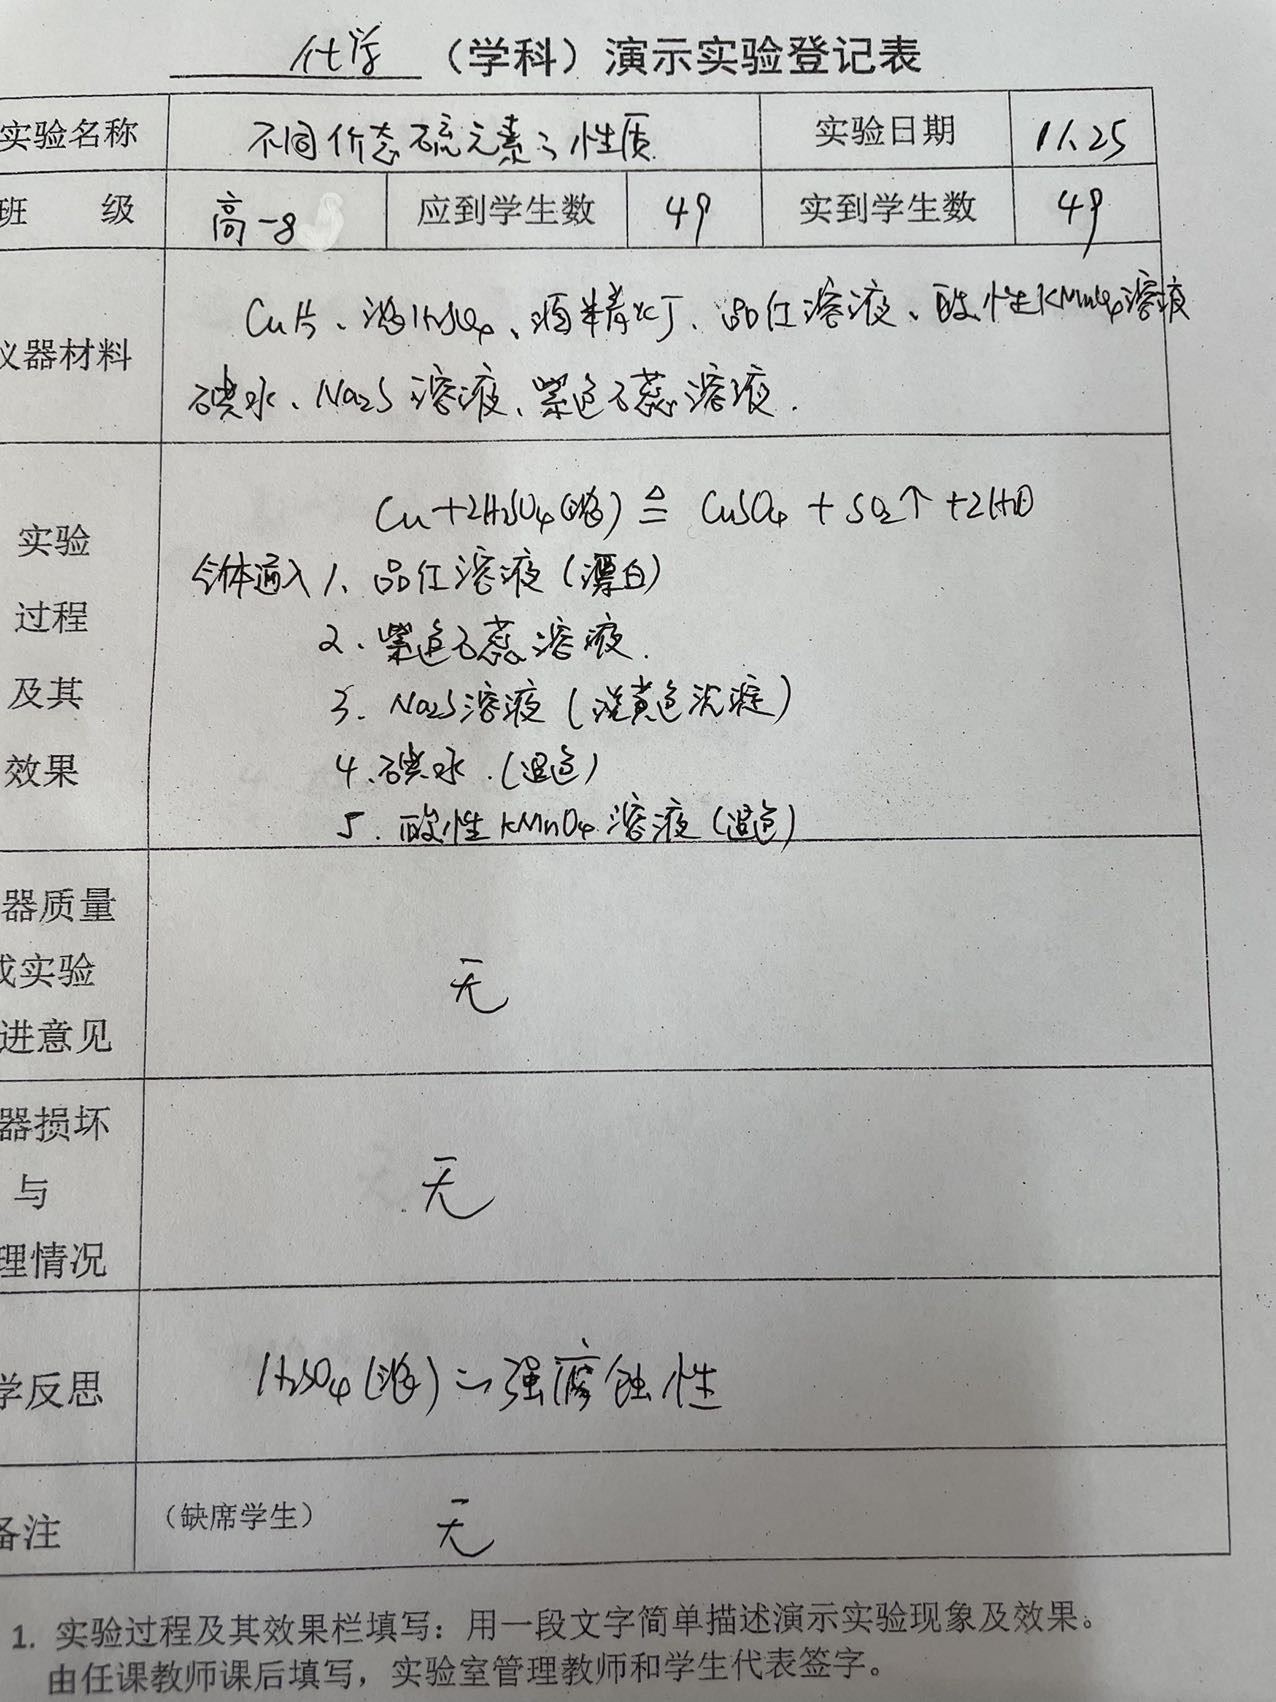 化学（学科）演示实验登记表
实验名称 不同价态硫元素的性质 实验日期 11.25
班 级 高一8 应到学生数 49 实到学生数 49
仪器材料
Cu片、浓H₂SO₄、酒精灯、品红溶液、酸性KMnO₄溶液
碘水、Na₂S溶液、紫色石蕊溶液.
实验
过程
及其
效果
Cu+2H₂SO₄(浓) ≜ CuSO₄+SO₂↑+2H₂O
气体通入 1、品红溶液（漂白）
2、紫色石蕊溶液.
3. Na₂S溶液（淡黄色沉淀）
4、碘水.（退色）
5. 酸性KMnO₄溶液（退色）
器质量
或实验
进意见
无
器损坏
与
理情况
无
学反思 H₂SO₄(浓)的强腐蚀性
备注 （缺席学生） 无
1. 实验过程及其效果栏填写：用一段文字简单描述演示实验现象及效果。
由任课教师课后填写，实验室管理教师和学生代表签字。